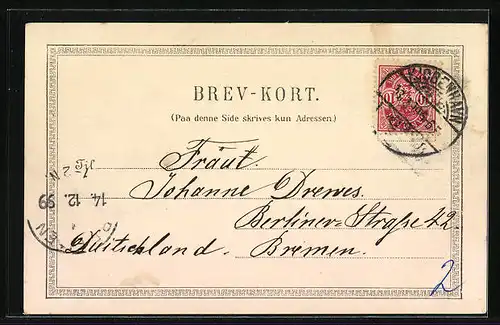 BREV-KORT.
(Paa denne Side skrives kun Adressen.)
KJØBENHAVN
10 10
Fräul.
Johanne Drewes.
Berliner-Straße 42
Deutschland. Bremen.
14. 12. 99
2